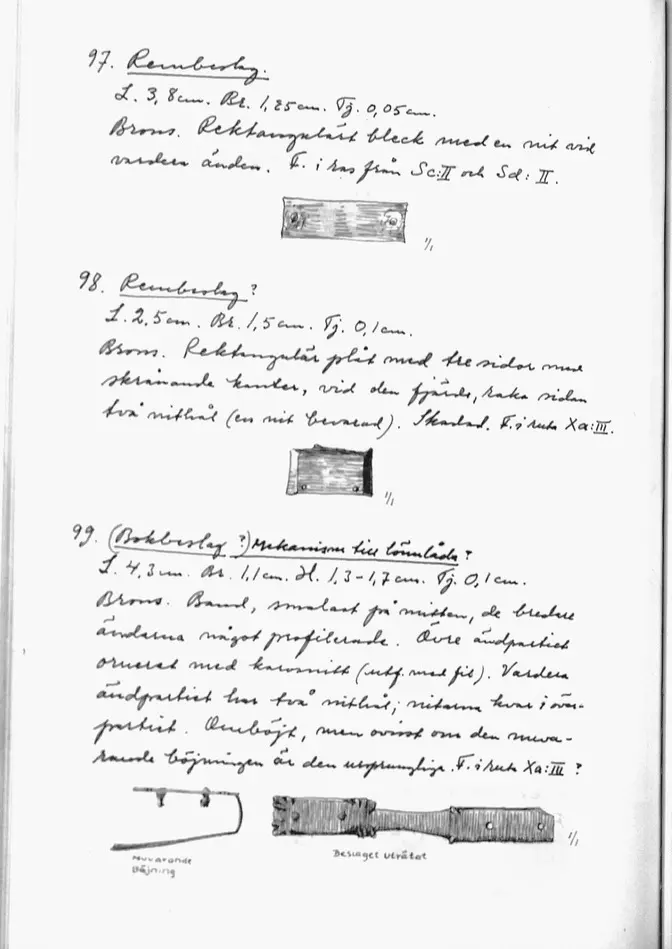 97. Rembeslag.
L. 3,8cm. Br. 1,25cm. Tj. 0,05cm.
Brons. Rektangulärt bleck med en nit vid
vardera änden. F. i ras från Sc:II och Sd: II.
1/1
98. Rembeslag?
L. 2,5cm. Br. 1,5cm. Tj. 0,1cm.
Brons. Rektangulär plåt med tre sidor med
skrånande kanter, vid den fjärde, raka sidan
två nithål (en nit bevarad). Skadad. F. i ruta Xa:III.
1/1
99. (Bokbeslag ?) Mekanism till lönnlåda?
L. 4,3cm. Br. 1,1cm. H. 1,3-1,7cm. Tj. 0,1cm.
Brons. Band, smalast på mitten, de bredare
ändarna något profilerade. Övre ändpartiet
ornerat med karvsnitt (utf. med fil). Vardera
ändpartiet har två nithål; nitarna kvar i övre-
partiet. Ombøjt, men ovisst om den nuva-
rande böjningen är den ursprungliga. F. i ruta Xa:III ?
Nuvarande
Böjning
Beslaget uträtat
1/1